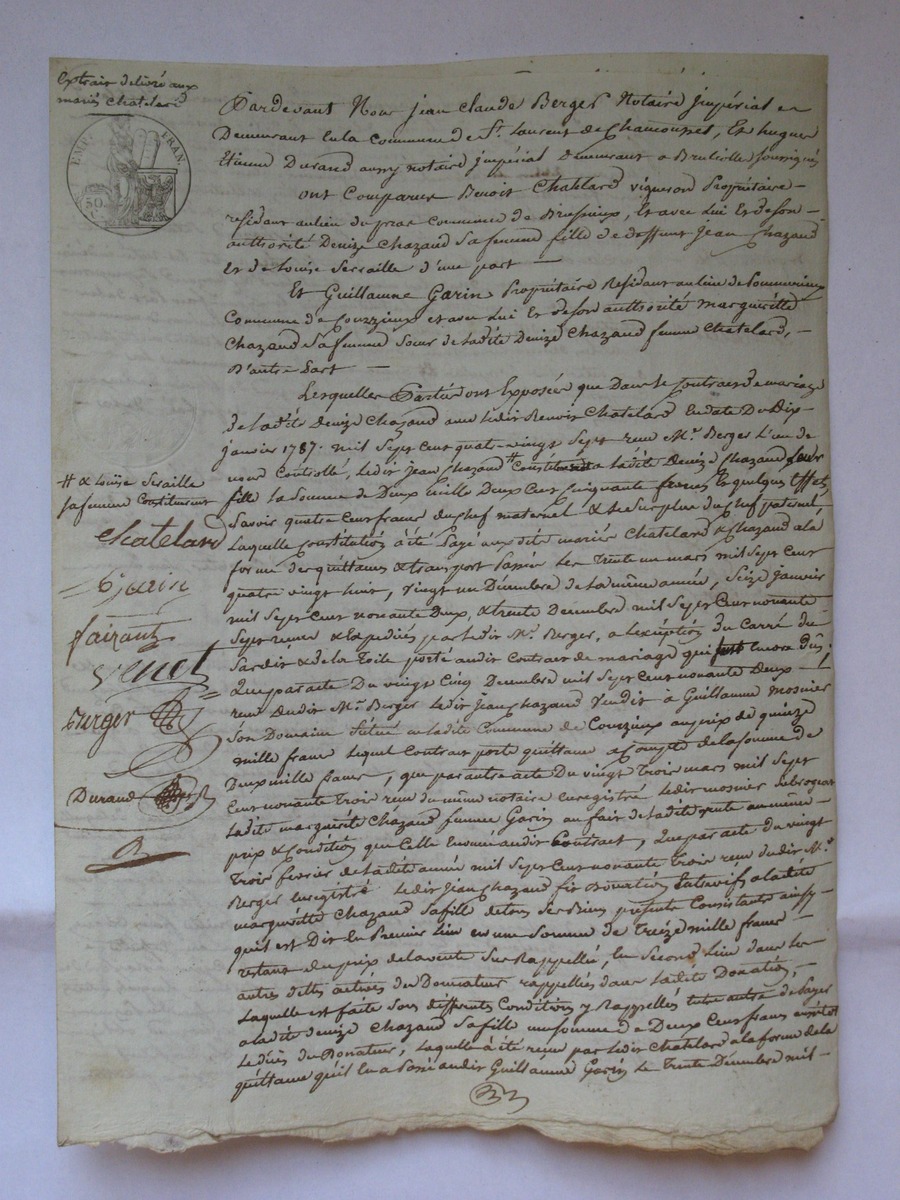 Extrait délivré aux
mariés Chatelard
EMP. FRAN.
50
C
Pardevant Nous Jean Claude Berger Notaire Impérial en
Demeurant en la Commune de St. Laurent de Chamousset, Et hugues
Etienne Durand aussy notaire impérial demeurant a Brulliolle soussignés
ont Comparus Benoit Chatelard vigneron Propriétaire
residant au lieu du pras commune de Brussieux, Et avec Lui Et de son
authorité Denize Chazaud sa femme fille de deffunt Jean Chazaud
Et de Louise Serraille d'une part
Et Guillaume Garin Propriétaire Residant au lieu de Pommerieux
Commune de Courzieux et avec Lui Et de son authorité marguéritte
Chazaud sa femme soeur de ladite Denize Chazaud femme Chatelard,
D'autre Part
Lesquelles Parties ont Exposées que Dans le Contrat de mariage
de ladite Denize Chazaud avec ledit Benoit Chatelard en date Du Dix
janvier 1787. mil Sept Cent quatre-vingt Sept reçu Me. Berger L'un de
nous Controllé, ledit Jean Chazaud # Constituèrent a ladite Denize Chazaud leur
fille la Somme de Deux mille Deux Cent Cinquante francs Et quelques Effets,
Savoir quatre Cent francs du chef maternel & le Surplus du Chef paternel
Laquelle Constitution a été Payé aux dits mariés Chatelard & Chazaud a la
forme des quittances & transport Passés Les Trente un mars mil Sept Cent
quatre vingt huit, Vingt un Décembre de la même année, Seize Janvier
mil Sept Cent nonante Deux, & trente Decembre mil Sept Cent nonante
Sept reçues & Expédiées par ledit Me. Berger, a l'exéption du Carré de
Jardin & de la Toile porté au dit Contrat de mariage qui sont encore Dûs;
Que par acte Du vingt Cinq Decembre mil Sept Cent nonante Deux
reçu dudit Me. Berger ledit jean Chazaud Vendit à Guillaume mosnier
Son Domaine Situé en ladite Commune de Courzieux au prix de quinze
mille francs lequel Contrat porte quittance a Compte de la Somme de
Deux mille francs, que par autre acte Du vingt Trois mars mil Sept
Cent nonante Trois reçu du même notaire enregistré ledit mosnier Subrogeat
Ladite marguérite Chazaud femme Garin au fait de ladite Vente au même
prix & Condition que Celle Enoncé au dit Contract, Que par acte du vingt
Trois février de ladite année mil Sept Cent nonante Trois reçu dudit Me.
Berger enregistré ledit Jean Chazaud fit Donnation Entrevifs a ladite
marguéritte Chazaud Sa fille de tous Ses Biens présents Consistants ainsy
qu'il est Dit En Premier Lieu en une Somme de Treize mille francs
restant du prix de la vente Sus Rappellée, En Second Lieu dans les
autres dettes actives du Donnateur rappellées dans ladite Donation,
Laquelle est faite Sous différents Conditions y Rappellés entre autre de Payer
a ladite denize Chazaud Sa fille une Somme de Deux Cent francs aussitot
le décès du Donateur, laquelle a été reçue par ledit Chatelard a la forme de la
quittance qu'il en a Passé au dit Guillaume Garin le Trente Décembre mil
# & Louise Seraille
sa femme Constituerent
Chatelard
Garin
fairant
Venet
Berger
Durand